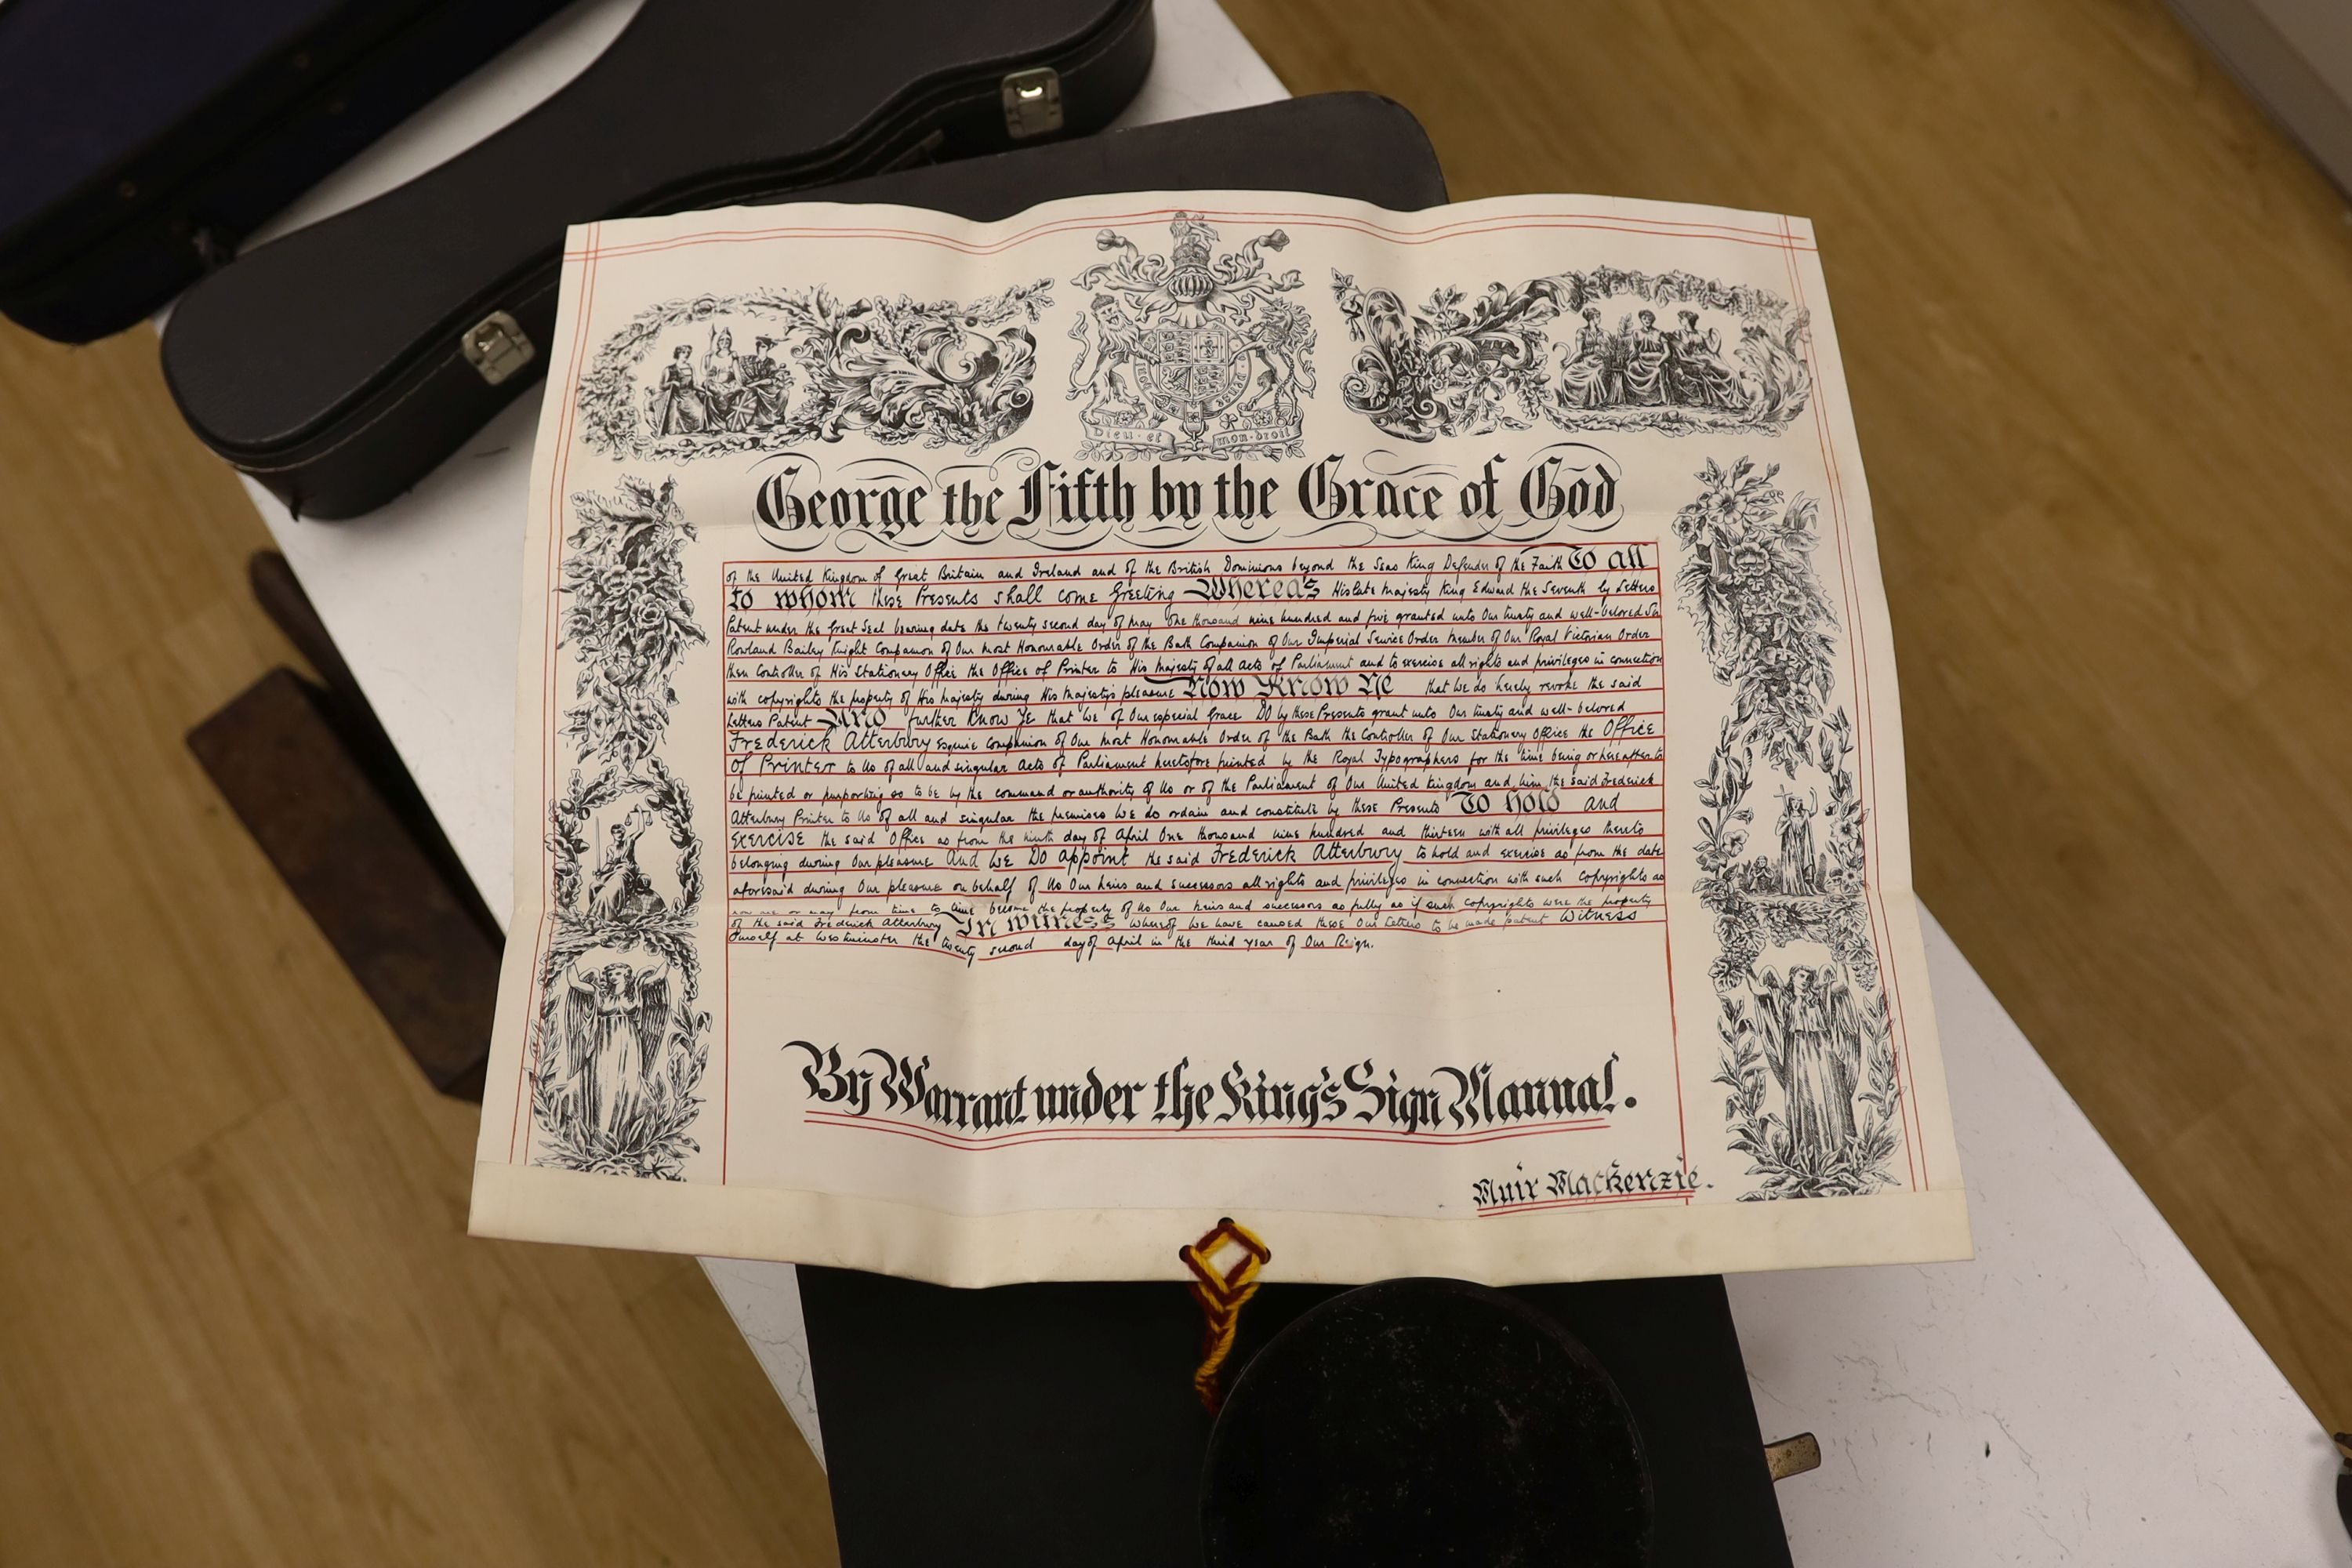 Dieu·et mon·droit
George the Fifth by the Grace of God
of the United Kingdom of Great Britain and Ireland and of the British Dominions beyond the Seas King Defender of the Faith To all
to whom these Presents shall come Greeting Whereas His late Majesty King Edward the Seventh by Letters
Patent under the Great Seal bearing date the twenty second day of May One thousand nine hundred and five granted unto Our trusty and well-beloved Sir
Rowland Bailey Knight Companion of Our most Honourable Order of the Bath Companion of Our Imperial Service Order Member of Our Royal Victorian Order
then Controller of His Stationery Office the Office of Printer to His Majesty of all Acts of Parliament and to exercise all rights and privileges in connection
with copyrights the property of His Majesty during His Majesty's pleasure Now Know Ye that We do hereby revoke the said
Letters Patent And further Know Ye that We of Our especial Grace Do by these Presents grant unto Our trusty and well-beloved
Frederick Atterbury Esquire Companion of Our most Honourable Order of the Bath the Controller of Our Stationery Office the Office
of Printer to Us of all and singular Acts of Parliament heretofore printed by the Royal Typographers for the time being or hereafter to
be printed or purporting so to be by the command or authority of Us or of the Parliament of Our United Kingdom and him the said Frederick
Atterbury Printer to Us of all and singular the premises We do ordain and constitute by these Presents To hold and
exercise the said Office as from the ninth day of April One thousand nine hundred and thirteen with all privileges thereto
belonging during Our pleasure And We Do appoint the said Frederick Atterbury to hold and exercise as from the date
aforesaid during Our pleasure on behalf of Us Our heirs and successors all rights and privileges in connection with such copyrights as
now are or may from time to time become the property of Us Our heirs and successors as fully as if such copyrights were the property
of the said Frederick Atterbury In witness whereof We have caused these Our Letters to be made patent Witness
Ourself at Westminster the twenty second day of April in the third year of Our Reign.
By Warrant under the King's Sign Manual.
Muir Mackenzie.